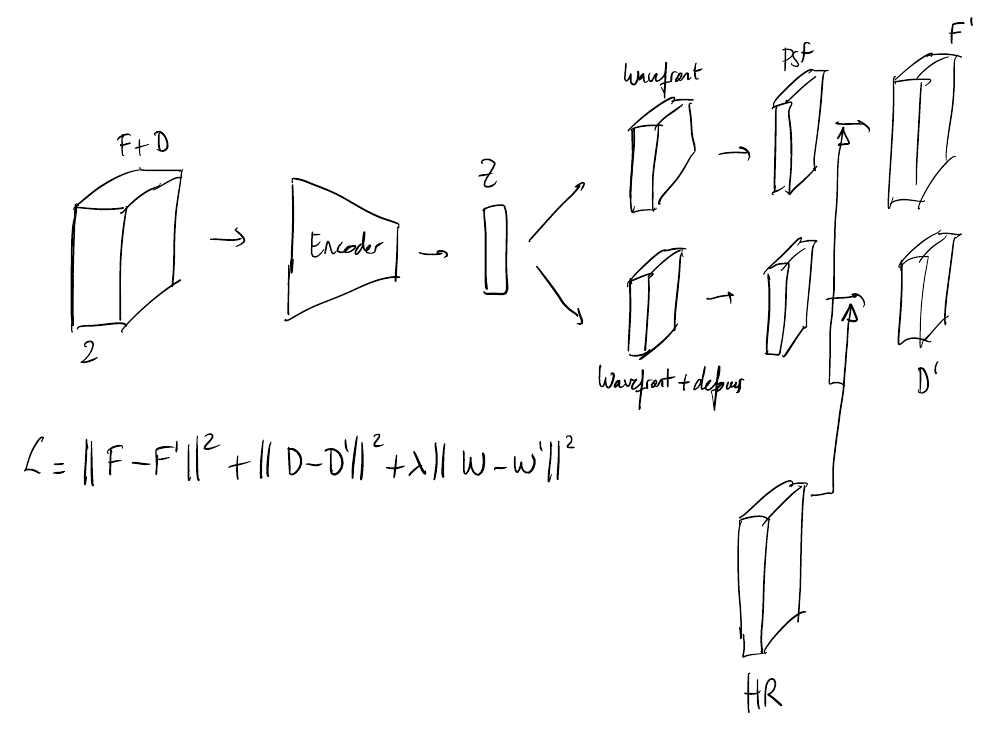 F+D
2
Encoder
Z
Wavefront
PSF
F'
Wavefront + defocus
D'
L = || F - F' ||² + || D - D' ||² + λ || W - W' ||²
HR